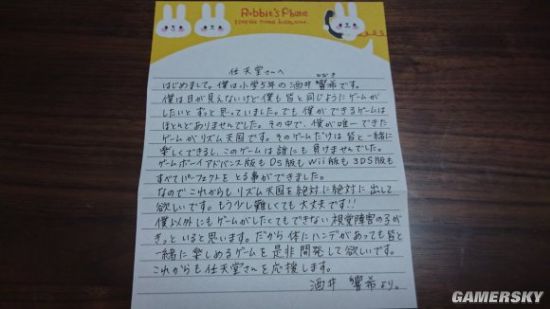 Rabbit's Phone
任天堂さんへ
はじめまして。僕は小学5年の酒井響希です。
ひびき
僕は目が見えないけど僕も皆と同じようにゲームが
したいとずっと思っていました。でも僕ができるゲームは
ほとんどありませんでした。その中で、僕が唯一できた
ゲームがリズム天国です。そのゲームだけは皆と一緒に
楽しくできるし、このゲームは誰にも負けませんでした。
ゲームボーイアドバンス版もDS版もWii版も3DS版も
すべてパーフェクトをとる事ができました。
なのでこれからもリズム天国を絶対に絶対に出して
欲しいです。もう少し難しくても大丈夫です!!
僕以外にもゲームがしたくてもできない視覚障害の子が
きっといると思います。だから体にハンデがあっても皆と
一緒に楽しめるゲームを是非開発して欲しいです。
これからも任天堂さんを応援します。
酒井 響希より。
GAMERSKY